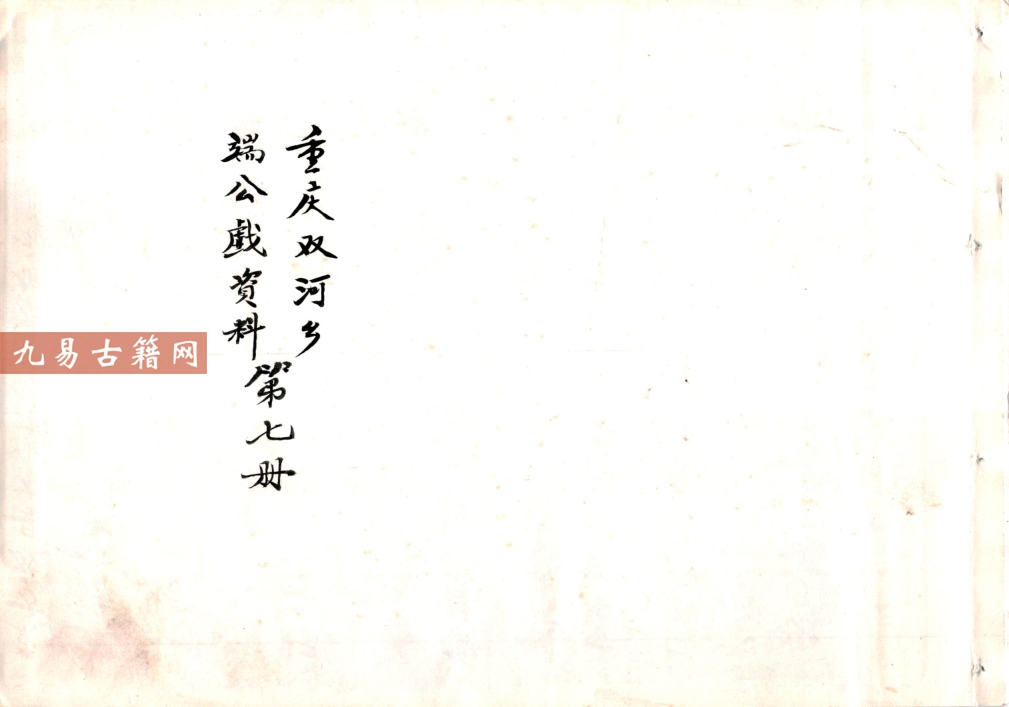 重庆双河乡
端公戲資料
第七册
九易古籍网